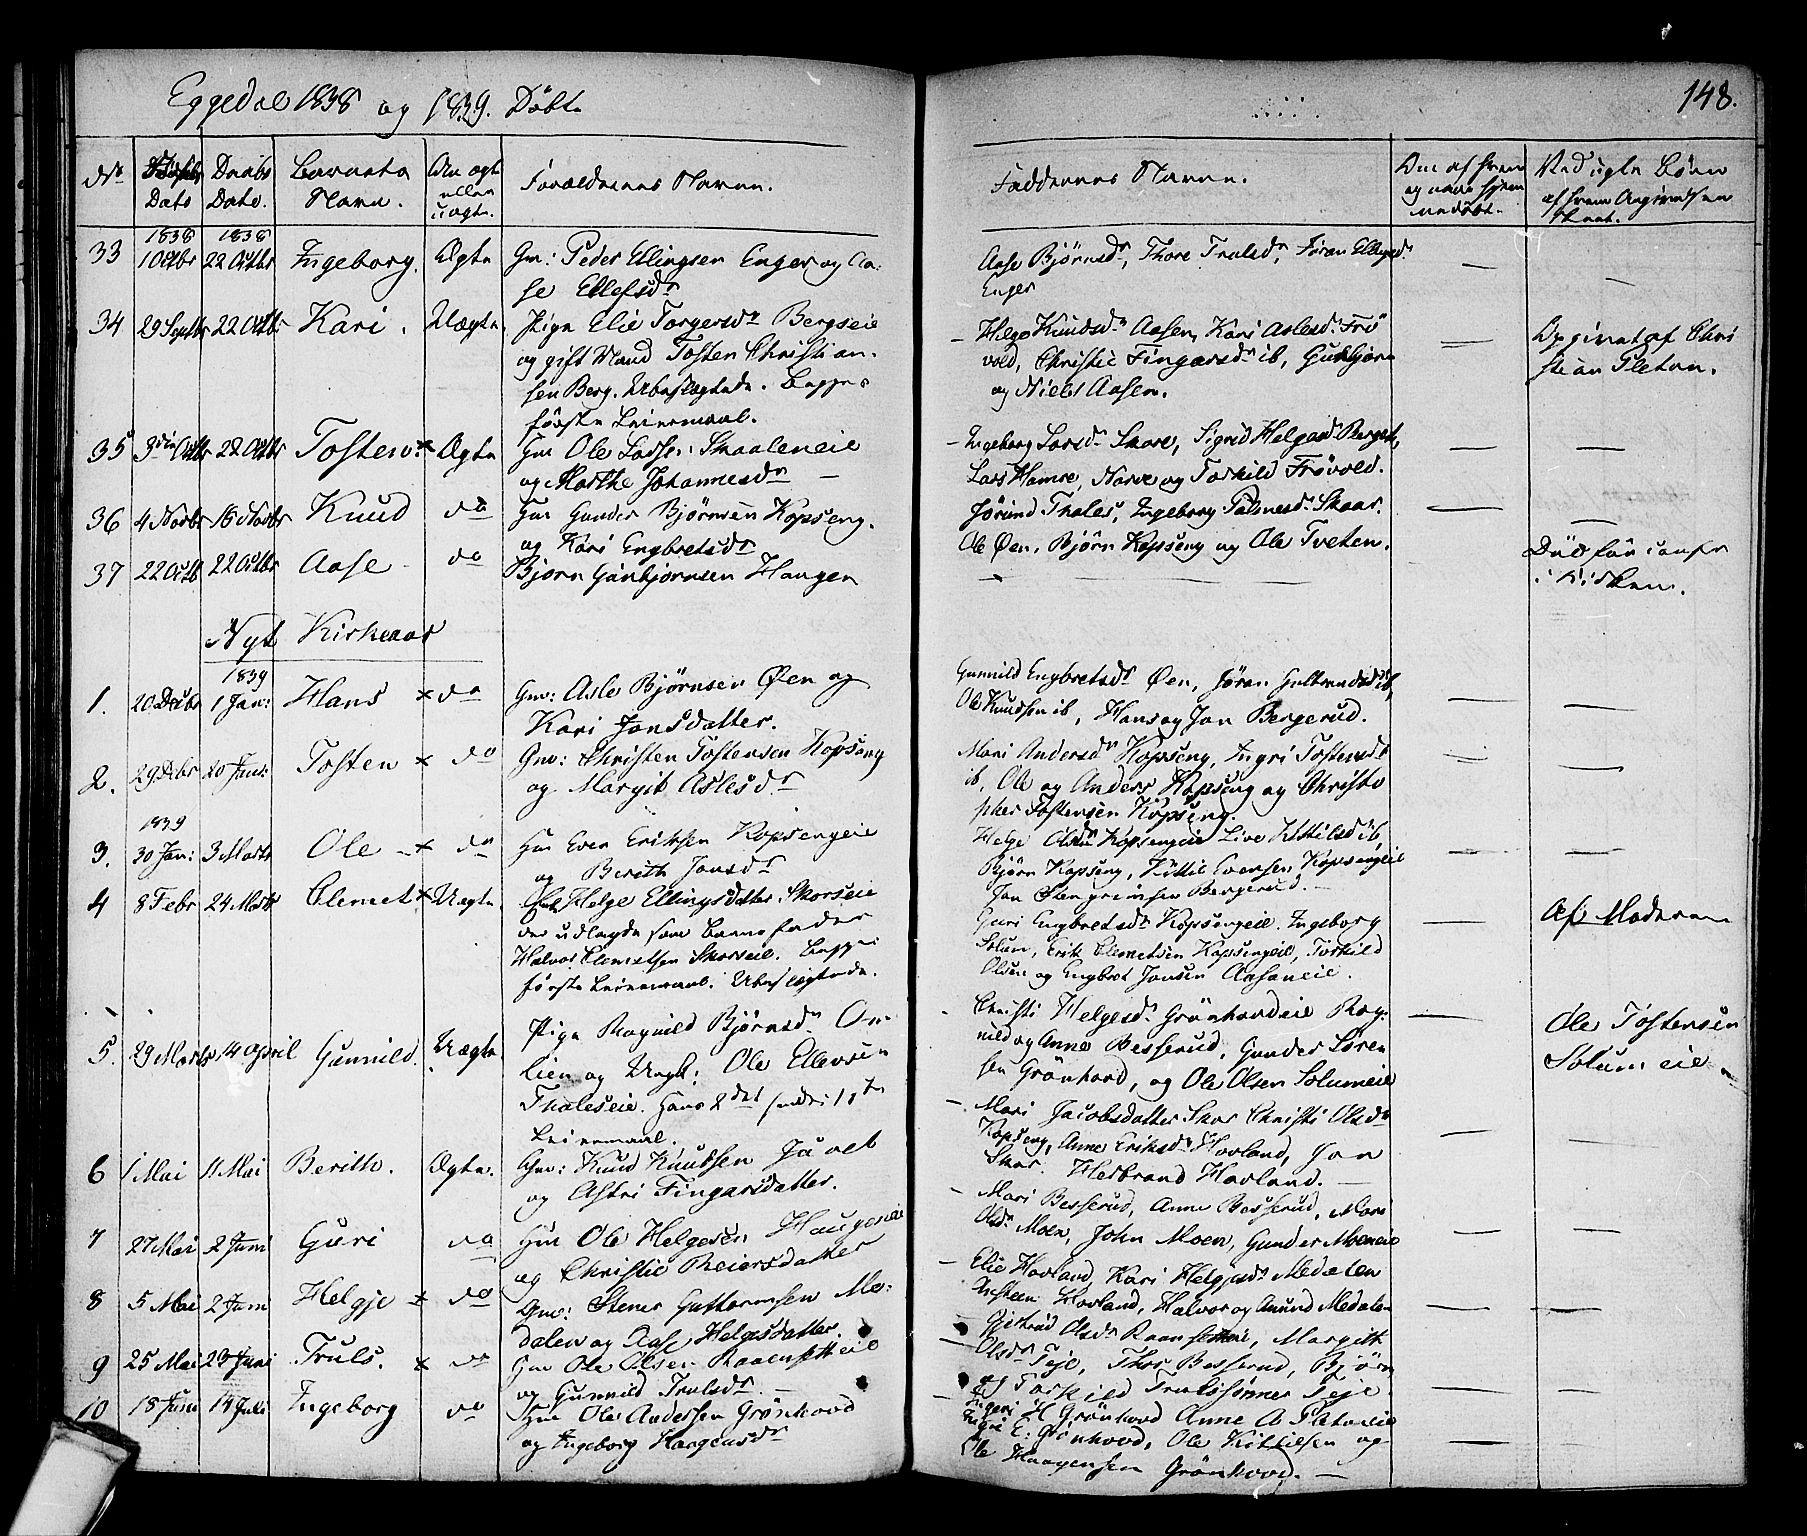 Eggedal 1838 og 1839. Döbte
148.
No
Dato
Daabs Dato.
Barnets Navn.
Om ægte eller uægte.
Forældrenes Navne.
Faddernes Navne.
33
1838
10 Octbr
1838
22 Octbr
Ingeborg.
Ægte
Gm: Peder Ellingsen Enger og Aa-
se Ellefsdr
Aase Björnsdr, Thore Trulsdr, Jöran Ellingsdr
Enger
34
29 Septbr
22 Octbr
Kari.
Uægte.
Pige Elie Torgersdr Bergseie
og gift Mand Tosten Christian-
sen Berg. Ubeslægtede. Begges
förste Leiermaal.
Helge Knudsdr Aasen, Kari Aslesdr Frö
vold, Christie Fingarsdr ib, Gulbjörn
og Niels Aasen.
Opgivet af Chri
stian Pleten.
35
3die Octbr
22 Octbr
Tosten. x
Ægte
Hm Ole Larss. Skaaleneie
og Marthe Johannesdr
Ingeborg Larsdr Skare, Sigrid Helgesdr Berget,
Lars Hamre, Narve og Torkild Frövold.
36
4 Novbr
18 Novbr
Knud
do
Hm Gunder Björnsen Kopseng.
og Kari Engbretsdr
Jörund Thales, Ingeborg Skaar.
Ole Öen, Björn Kopseng og Ole Tveten.
37
22 Octb
22 Octbr
Aase
do
Björn Gulbjörnsen Haugen
Död för
i Kirken.
Nyt Kirkeaar
1.
20 Decbr
1839
1 Jan:
Hans x
do
Gm: Asle Björnsen Öen og
Kari Jonsdatter.
Gunnild Engbretsdr Öen, Jöran Gulbrandsdr ib,
Ole Knudsen ib, Hans og Jon Bergerud.
2.
29 Decbr
20 Janr:
Tosten x
do
Gm: Christen Tostensen Kopseng
og Margit Aslesdr
Mari Andersdr Kopseng, Ingri Tostensdr
ib, Ole og Anders Kopseng og Christo
pher Tostensen Kopseng.
3.
1839
30 Jan:
3 Marts
Ole x
do
Hm Even Eriksen Kopsengeie
og Berith Jonsdr
Helge Olsdr Kopsengeie Live Kittilsd ib,
Björn Kopseng, Kittil Evensen Kopsengeie
Jon Stengrimsen Bergerud.
4
8 Febr
24 Marts
Clemet x
Uægte
Helge Ellingsdatter Skorseie
der udlagde som Barnefader
Halvor Clemetsen Skorseie. Begges
förste Leiermaal. Ubeslægtede.
Guri Engbretsdr Kopsengeie. Ingeborg
Solum, Erik Clemetsen Kopsengeie, Torkild
Olsen og Engbret Jonsen Aasaneie.
Af Moderen
5.
29 Marts
14 April
Gunnild.
Uægte
Pige Ragnild Björnsdr On-
lien og Ungk: Ole Ellevsen
Thaleseie. Hans 2det hendes 1ste
Leiermaal.
Christi Helgesdr Grönhovdeie Rag-
nild og Anne Besserud, Gunder Sören
sen Grönhovd, og Ole Olsen Solumeie
Ole Tostensen
Solumeie.
6
1 Mai
11 Mai
Berith.
Ægte.
Gm: Knud Knudsen Javel
og Astri Fingarsdatter.
Mari Jacobsdatter Skor Christi Olsdr
Kopseng, Anne Eriksdr Hovland, Jon
Skor. Herbrand Hovland.
7
27 Mai
2 Juni
Guri
do
Hm Ole Helgesen Haugeneie
og Christie Reiersdatter
Mari Besserud, Anne Besserud, Mari
Olsdr Moen, John Moen, Gunder Moeneie
8
5 Mai
2 Juni
Helgje x
do
Gm: Stener Guttormsen Me-
dalen og Aase Helgesdatter.
Elie Hovland, Kari Helgesdr Medalen
Hovland, Halvor og Amund Medalen
9
25 Mai
23 Juni
Truls. x
do
Hm Ole Olsen Raaenseteie
og Gunnild Trulsdr
Gjertrud Olsdr Raansetteie, Margith
Olsdr Teje, Thor Besserud, Björn
og Torkild Trulssönner Teje.
10
18 Juni
14 Juli
Ingeborg
do
Hm Ole Andersen Grönhovd
og Ingeborg Haagensdr
Ingeri H Grönhovd Anne A Pleteneie
Ingri E: Grönhovd, Ole Kittilsen og
Ole Haagensen Grönhovd.